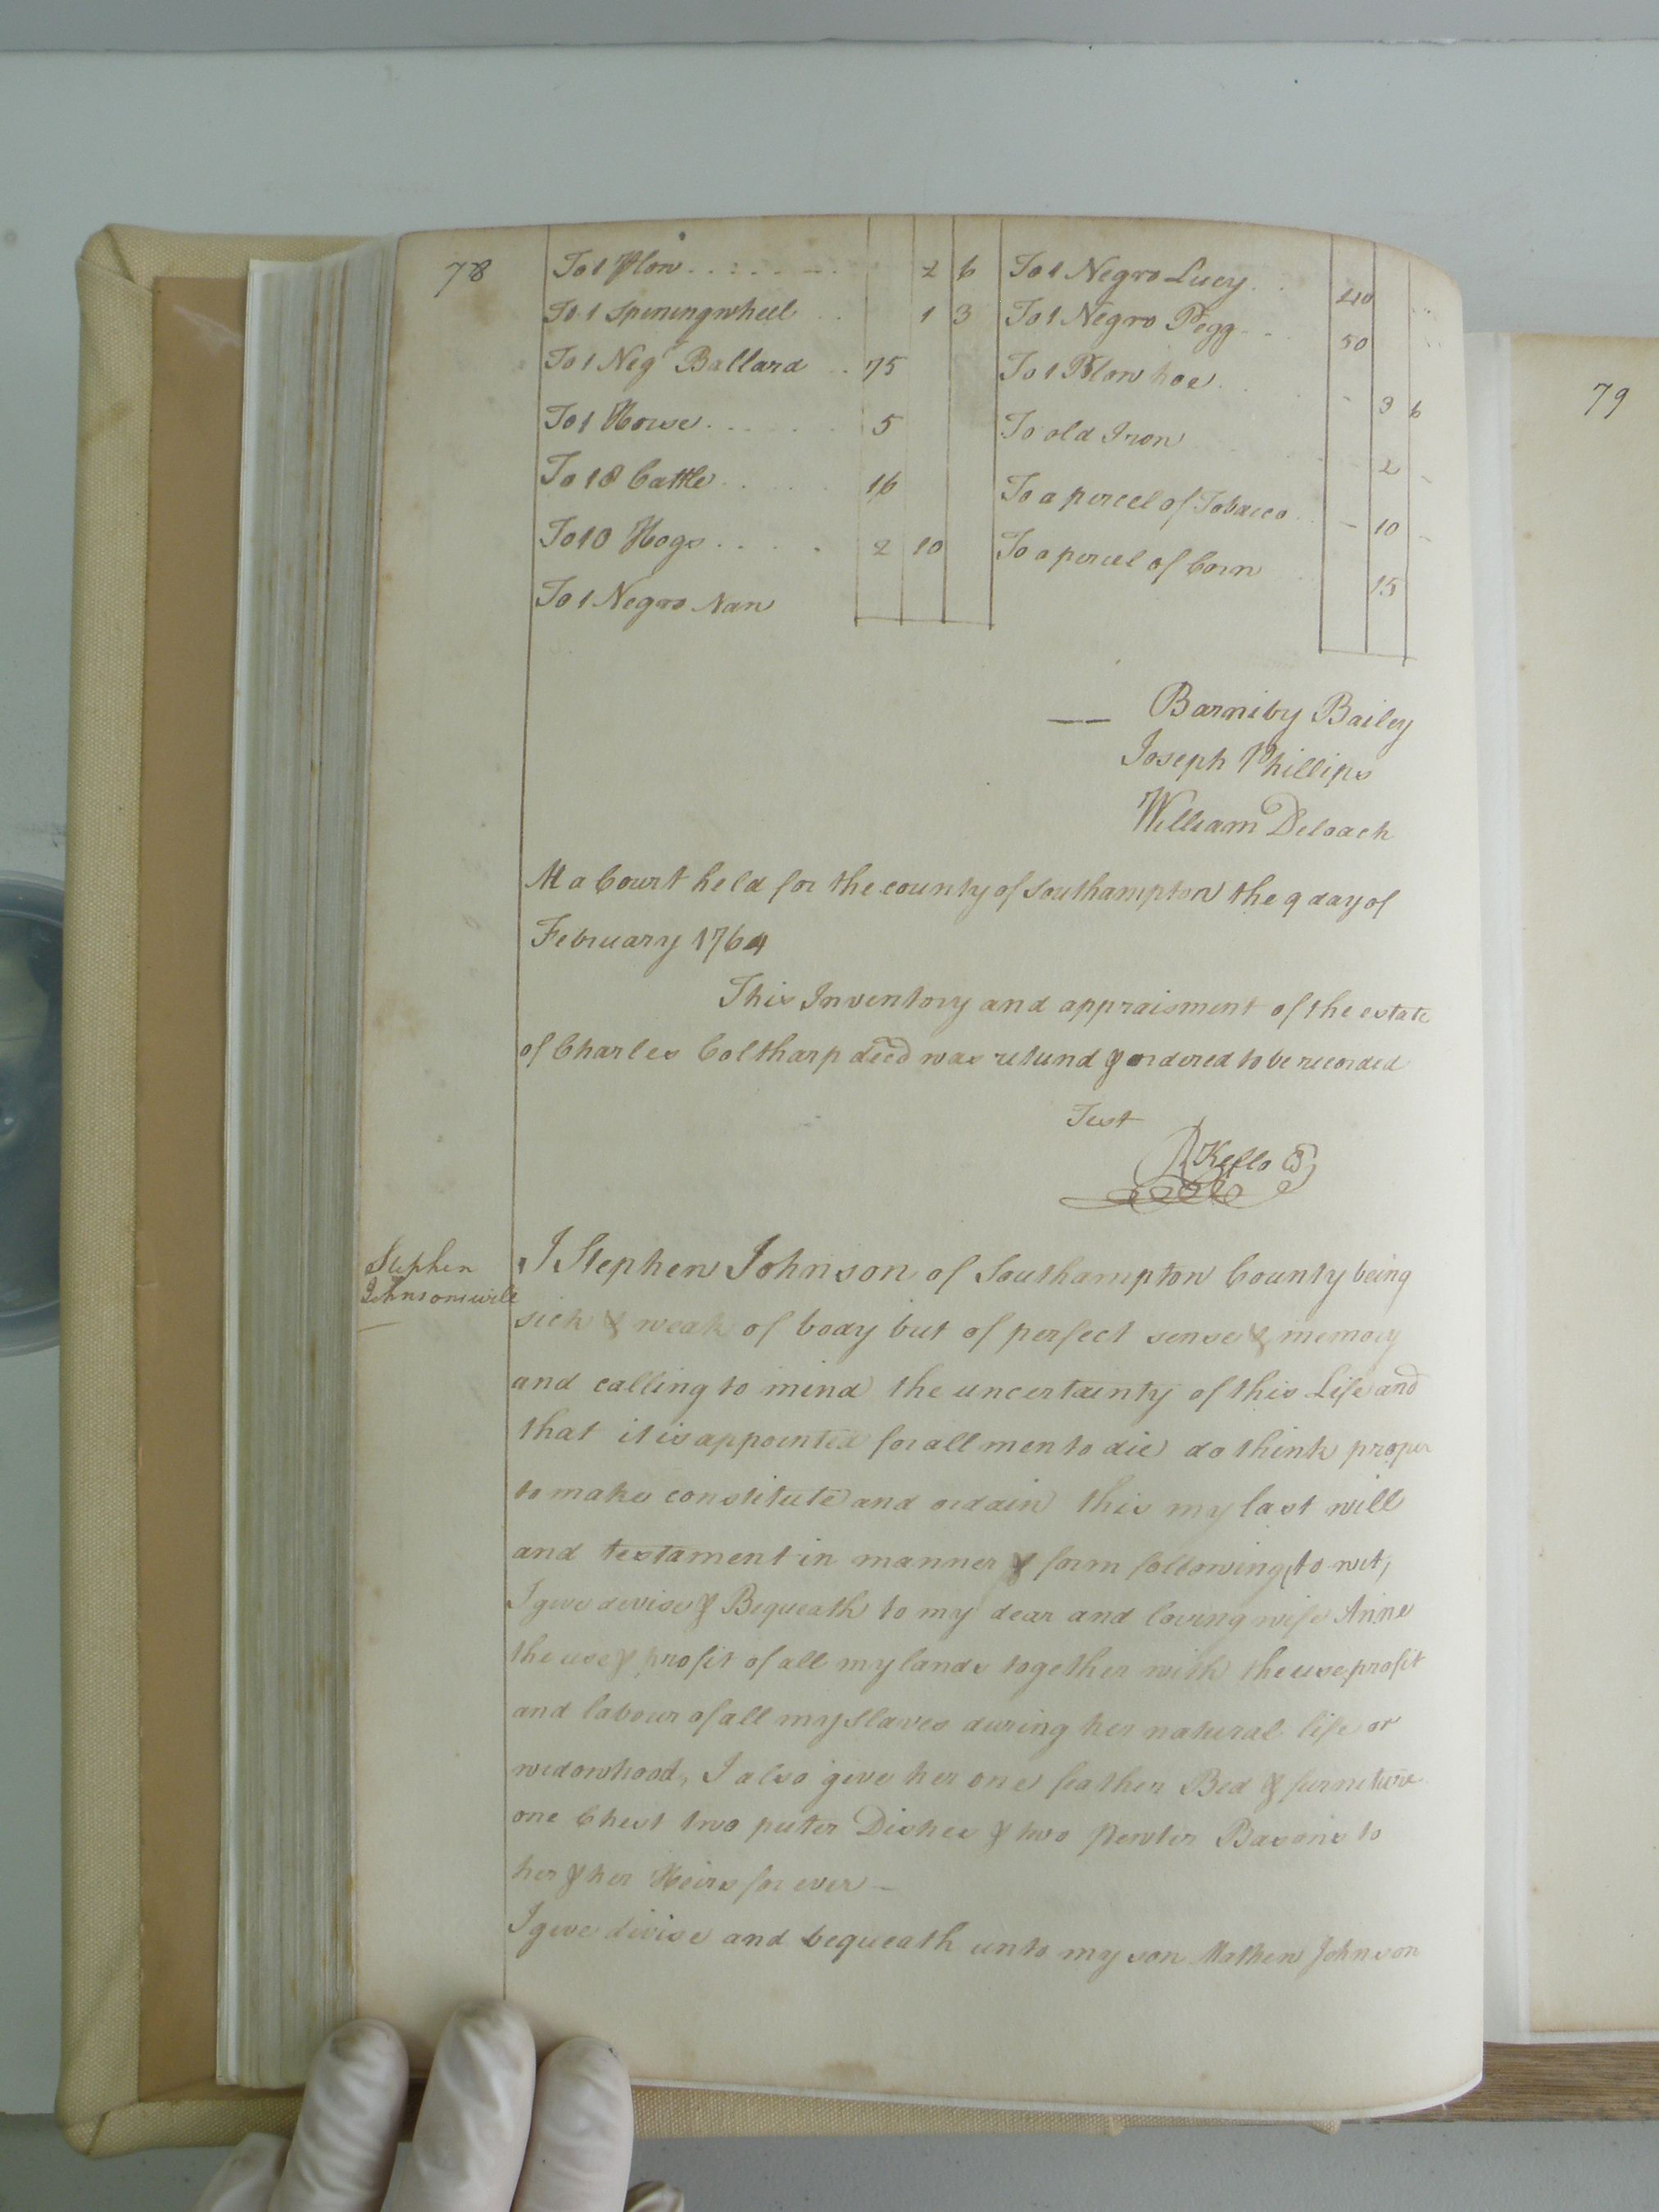 78
To 1 Plow . . . . . . . 2 6
To 1 Speningwheel . . 1 3
To 1 Neg.o Ballard . . 75
To 1 Horse . . . . . . 5
To 18 Cattle . . . . . 16
To 10 Hogs . . . . . 2 10
To 1 Negro Nan
To 1 Negro Lucy . . 40
To 1 Negro Pegg . . . 50
To 1 Plow hoe . . - 3 6
To old Iron - 2 -
To a percel of Tobacco . . - 10 -
To a percel of Corn 15
Barniby Bailey
Joseph Phillips
William Deloach
At a Court held for the county of Southampton the 9 day of
February 1764
This Inventory and appraisment of the estate
of Charles Coltharp decd was retund & ordered to be recorded
Test
R Kello
Stephen
Johnsons will
I Stephen Johnson of Southampton County being
sick & weak of body but of perfect sense & memory
and calling to mind the uncertainty of this Life and
that it is appointed for all men to die do think proper
to make constitute and ordain this my last will
and testament in manner & form following (to wit)
I give devise & Bequeath to my dear and loving wife Anne
the use & profit of all my lands together with the use, profit
and labour of all my Slaves during her natural life or
widowhood, I also give her one feather Bed & furniture
one Chest two puter Dishes & two Pewter Basons to
her & her Heirs for ever -
I give divise and bequeath unto my son Mathew Johnson
79